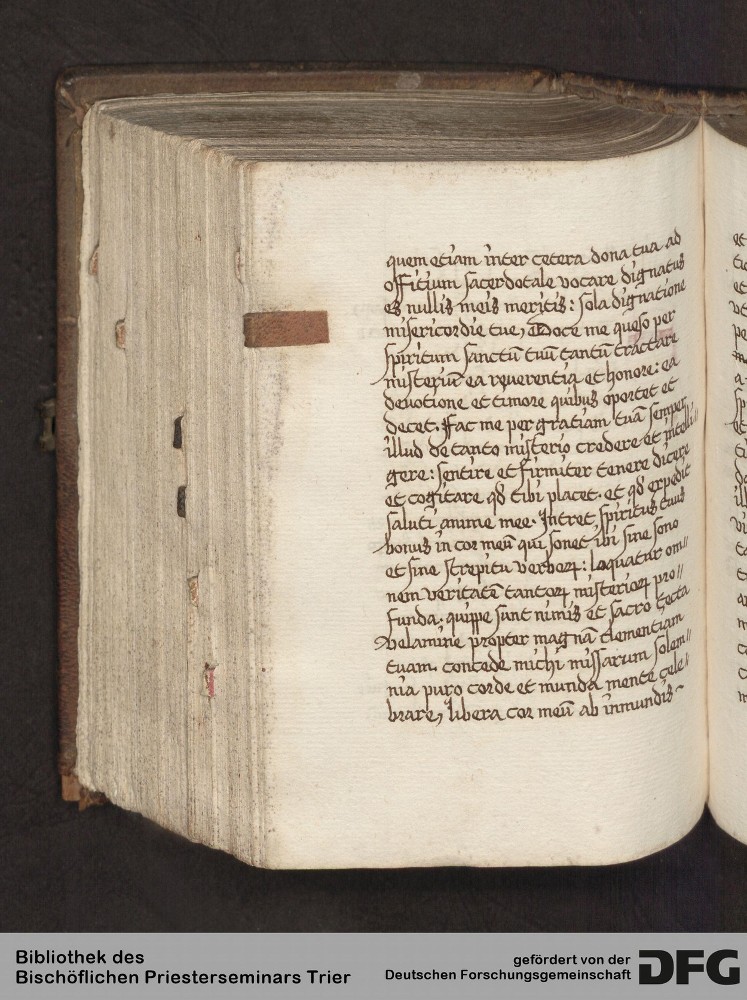 quem etiam inter cetera dona tua ad
offitium sacerdotale vocare dignatus
es nullis meis meritis: sola dignatione
misericordie tue, Doce me queso per
spiritum sanctū tuū tantū tractare
misteriū ea reverentia et honore: ea
devotione et timore quibus oportet et
decet. Fac me per gratiam tuā semper
illud de tanto misterio credere et intelli//
gere: sentire et firmiter tenere dicere
et cogitare. qđ tibi placet. et qđ expedit
saluti anime mee. Intret spiritus tuus
bonus in cor meū qui sonet ibi sine sono
et sine strepitu verboꝝ: loquatur om//
nem veritatē tantoꝝ misterioꝝ pro//
funda. quippe sunt nimis et sacro tecta
velamine propter magnā clementiam
tuam. concede michi missarum solem//
nia puro corde et munda mente cele//
brare, libera cor meū ab inmundis
et
et
Bibliothek des
Bischöflichen Priesterseminars Trier
gefördert von der
Deutschen Forschungsgemeinschaft
DFG